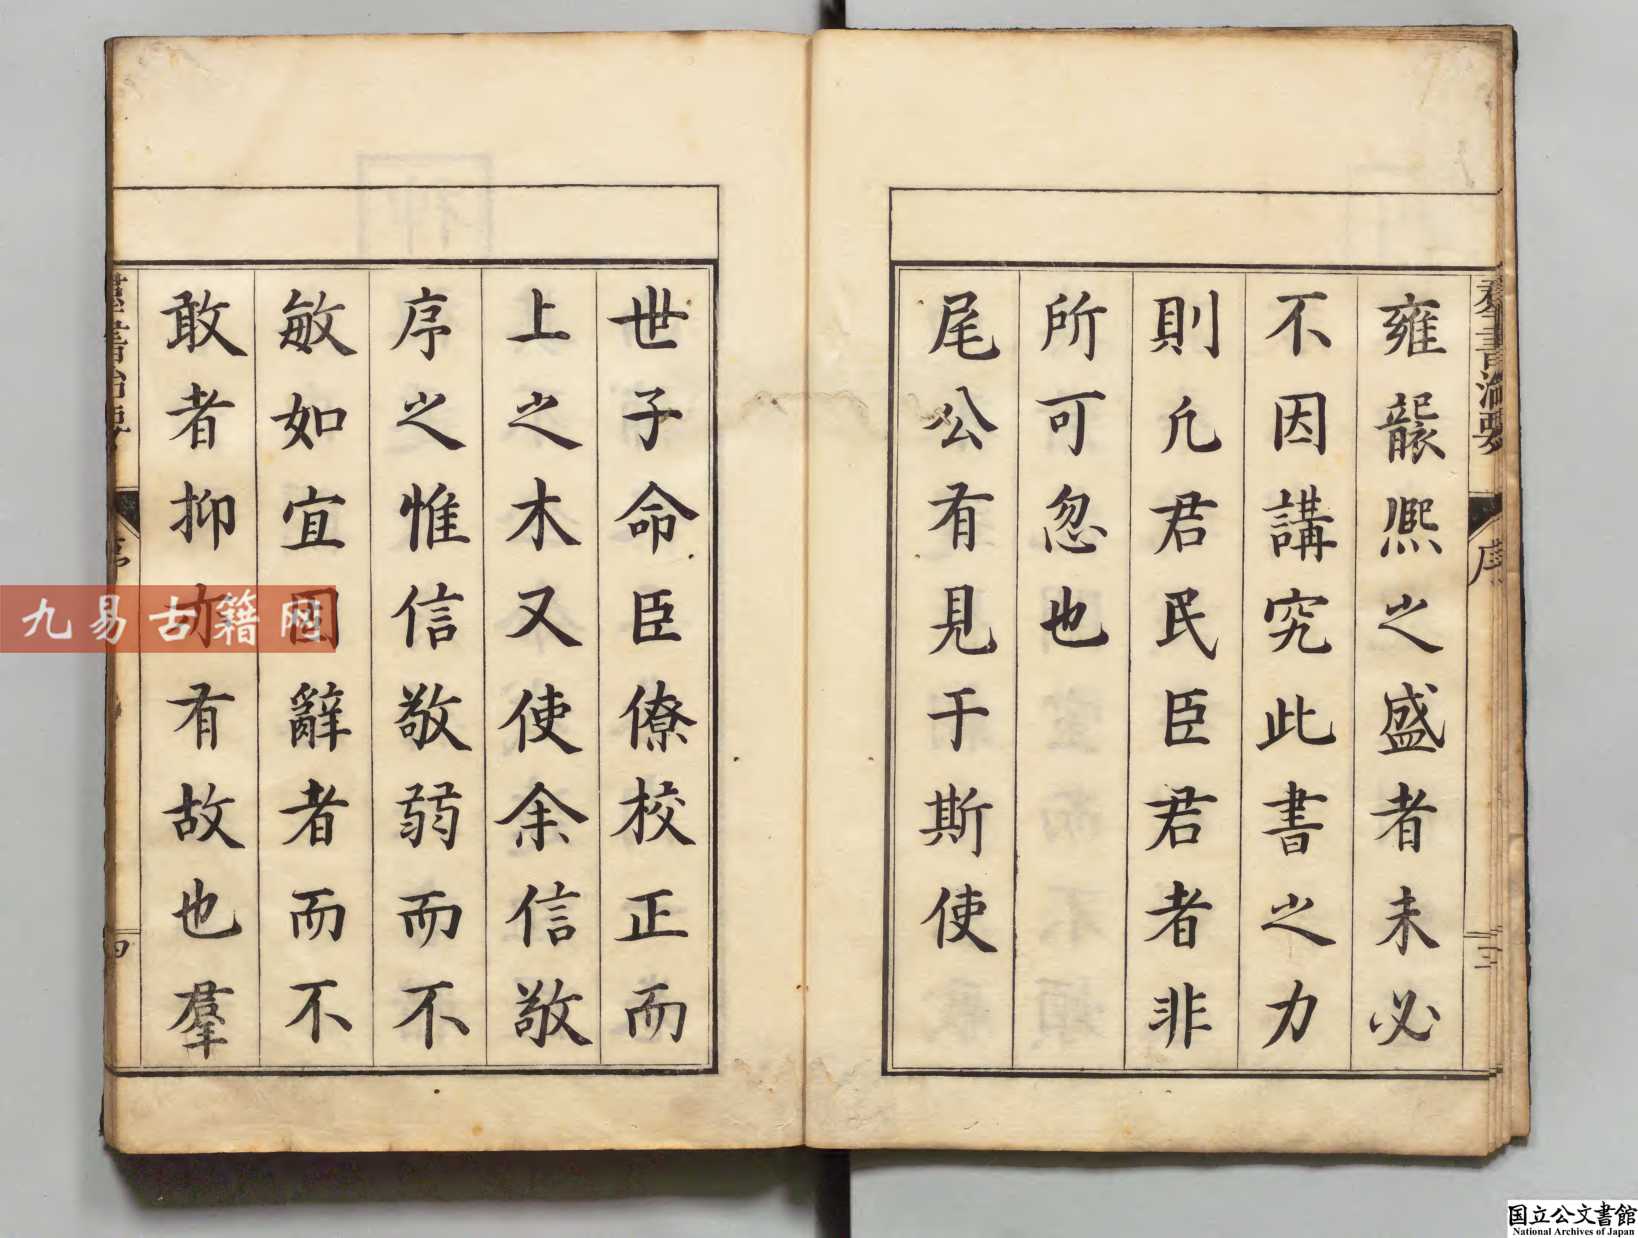 羣書治要
序
三
雍襲熙之盛者未必
不因講究此書之力
則凡君民臣君者非
所可忽也
尾公有見于斯使
世子命臣僚校正而
上之木又使余信敬
序之惟信敬弱而不
敏如宜固辭者而不
敢者抑有故也羣
四
九易古籍网
国立公文書館
National Archives of Japan